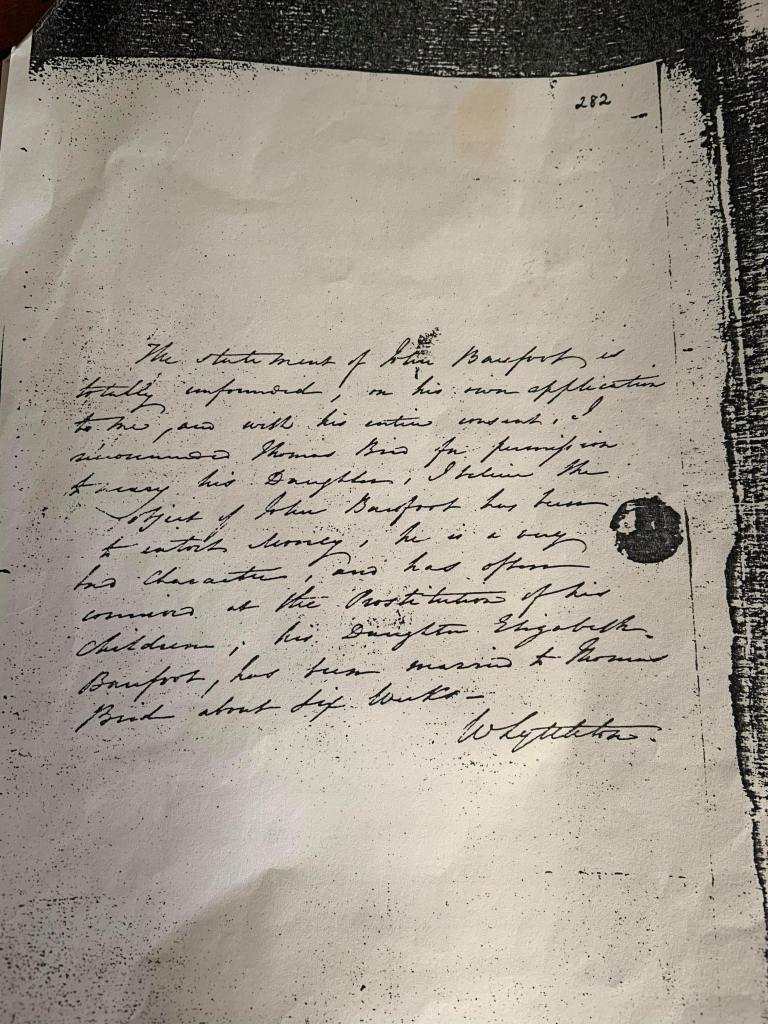 282
The statement of John Barefoot is
totally unfounded, on his own application
to me, and with his entire consent, I
recommended Thomas Bird for permission
to marry his Daughter, I believe the
object of John Barefoot has been
to extort Money, he is a very
bad Character, and has often
connived at the Prostitution of his
children; his Daughter Elizabeth
Barefoot, has been married to Thomas
Bird about six Weeks—
W Lyttleton.